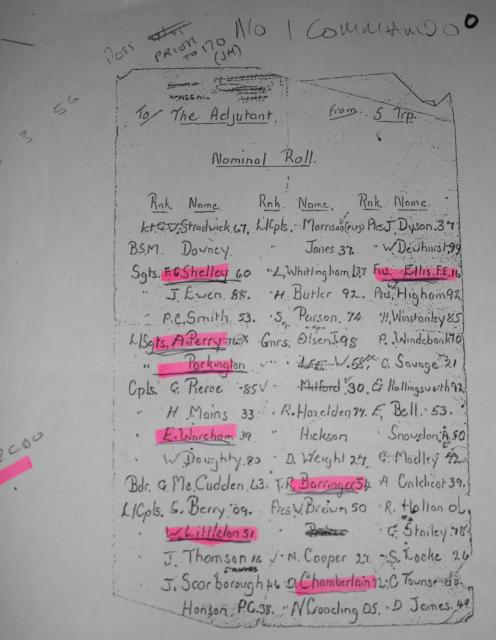 No 1 COMMANDO
POSS
PRIOR
TO 170
(JH)
3 56
To/ The Adjutant. From 5 Trp.
Nominal Roll.
Rnk. Name Rnk. Name. Rnk. Name.
Stradwick. 67. L/Cpls. Morrison J. Dyson. 37
B.S.M. Downey " Jones 37. " W Dewhurst 99
Sgts. F.G Shelley 60 " L. Whittingham 137 Fus. Ellis. F.E. 16
" J. Ewen. 88. " H Butler 92. Higham 92
" P.C. Smith 53. " S. Pearson. 74 " H. Winstanley 85
L/Sgts. A. Perry Gnrs. Olsen J. 98 P. Windebank 70
" Parkington O. Savage 21
Cpls. G. Pierce 85 Mitford 30. G Hollingsworth 92
" H Mains 33 " R. Hazelden 77. E. Bell. 53.
" E. Wareham 39 Hickson Snowdon. A. 50
" W. Doughty. 80 D. Weight 27. G. Madley 42
Bdr. G. Mc. Cudden. 63. R. Barringer 54 A Caldicot 39.
L/Cpls. S. Berry '09. V. Brown 50 R. Hollan
" W. Littleton 51 G. Stailey. 78
J. Thomson 16 N. Cooper 27. S. Locke 26
J. Scarborough 46 D. Chamberlain 12
Honson. P.G. 38. " N Croacling 05. D James. 42